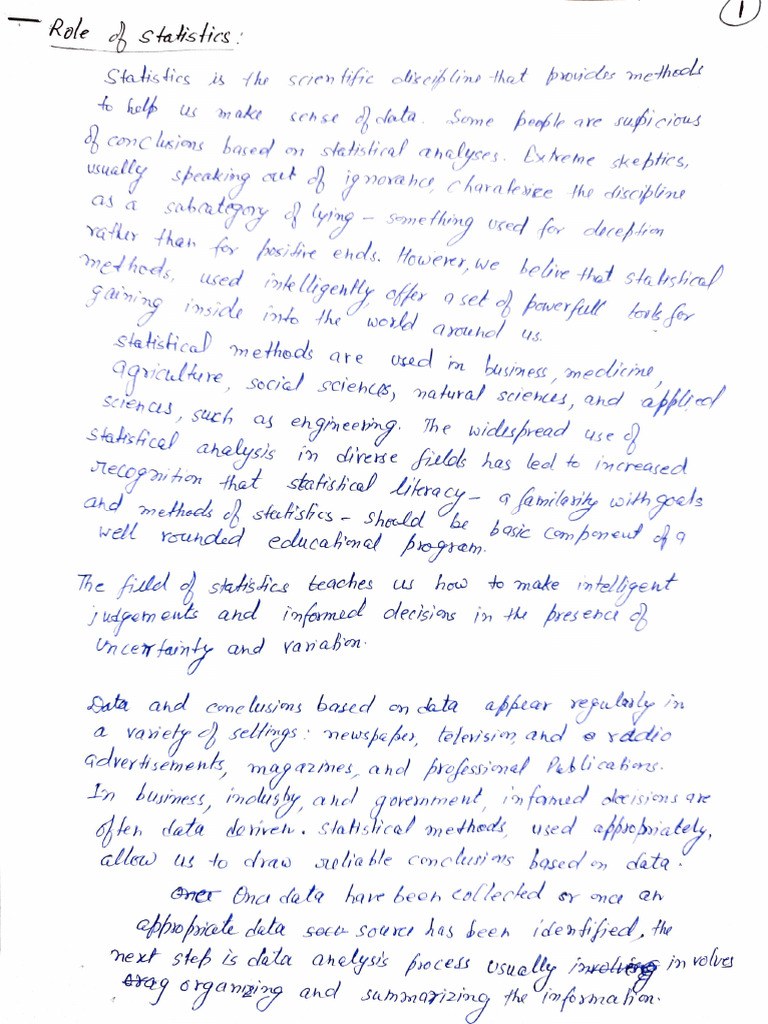 1
Role of Statistics:
Statistics is the scientific discipline that provides methods
to help us make sense of data. Some people are suspicious
of conclusions based on statistical analyses. Extreme skeptics,
usually speaking out of ignorance, charaterize the discipline
as a subcategory of lying – something used for deception
rather than for positive ends. However, we belive that statistical
methods, used intelligently offer a set of powerfull tools for
gaining inside into the world around us.
statistical methods are used in business, medicine,
agriculture, social sciences, natural sciences, and applied
sciences, such as engineering. The widespread use of
statistical analysis in diverse fields has led to increased
recognition that statistical literacy – a familarity with goals
and methods of statistics – should be basic component of a
well rounded educational program.
The field of statistics teaches us how to make intelligent
judgements and informed decisions in the presence of
uncertainty and variation.
Data and conclusions based on data appear regularly in
a variety of settings: newspaper, television, and radio
advertisements, magazines, and professional Publications.
In business, industry, and government, informed decisions are
often data deriven. statistical methods, used appropriately,
allow us to draw reliable conclusions based on data.
Once data have been collected or once an
appropriate data source has been identified, the
next step is data analysis process usually involves
organizing and summarizing the information.